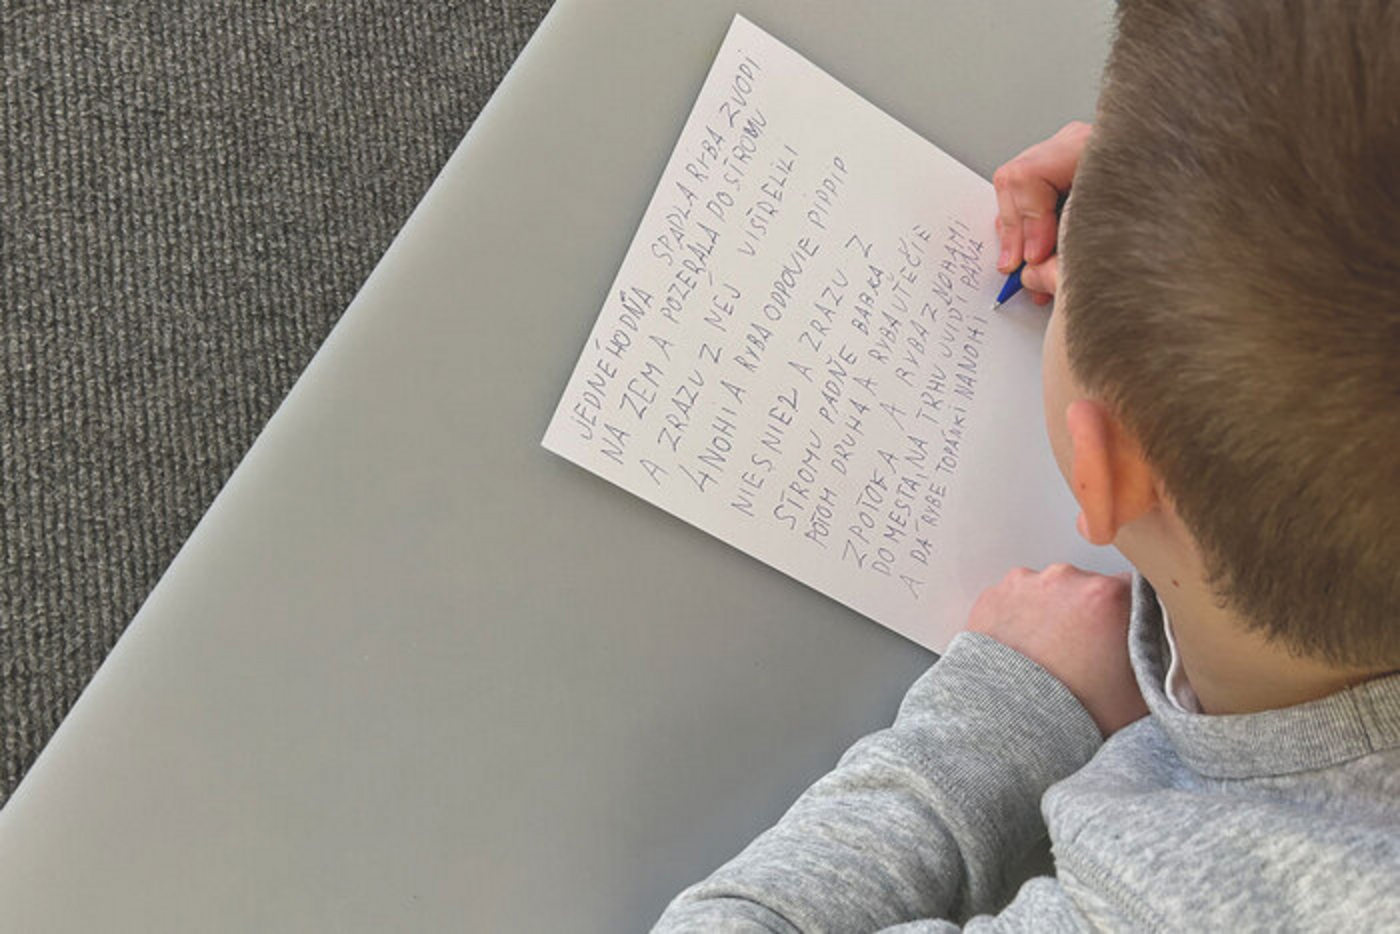 JEDNÉHODŇA SPADLA RYBA ZVODI
NA ZEM A POZERALA PO STROMU
A ZRAZU Z NEJ VISTRELILI
4 NOHI A RYBA ODPOVIE PIPPIP
NIESNIEŽ A ZRAZU Z
STROMU PADŇE BABKA
POTOM DRUHA A RYBAUTEČIE
ZPOTOKA A RYBA Z NOHAMI
DOMESTA NA TRHU UVIDI PAŇA
A DÁ RYBE TOPANKI NANOHI